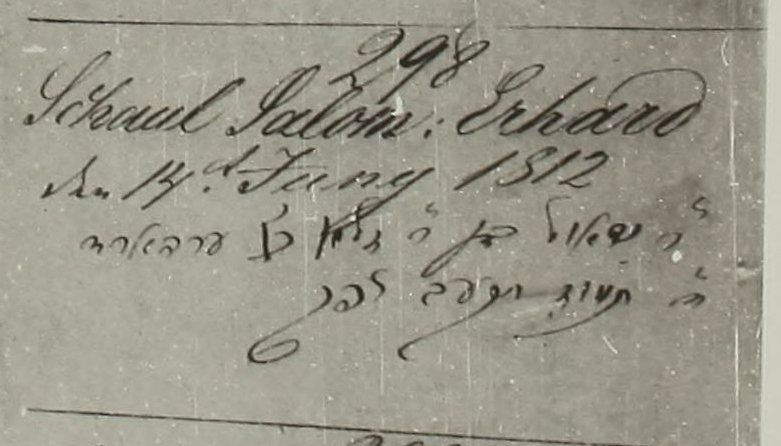 298
Schaul Salom: Erhard
den 14t Juny 1812
ה׳ שאול בן ה׳ זלמן כ״ץ ערהארד
ה׳ תמוז תקעב לפק